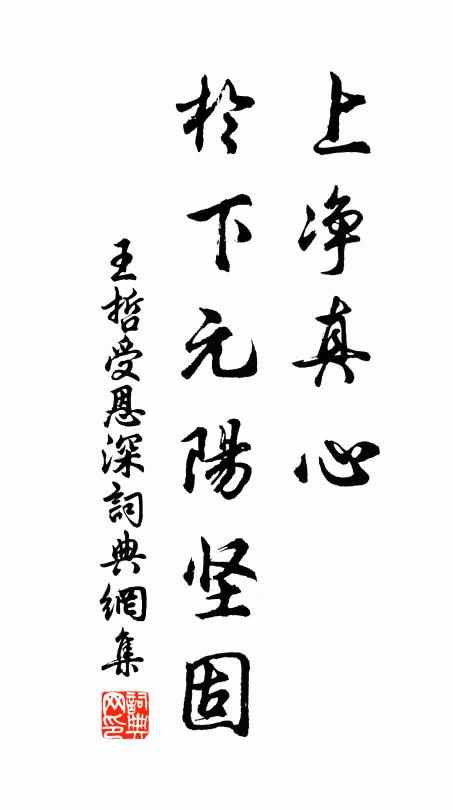 上净真心
於下元陽坚固
王哲受恩深詞典網集
詞典网印